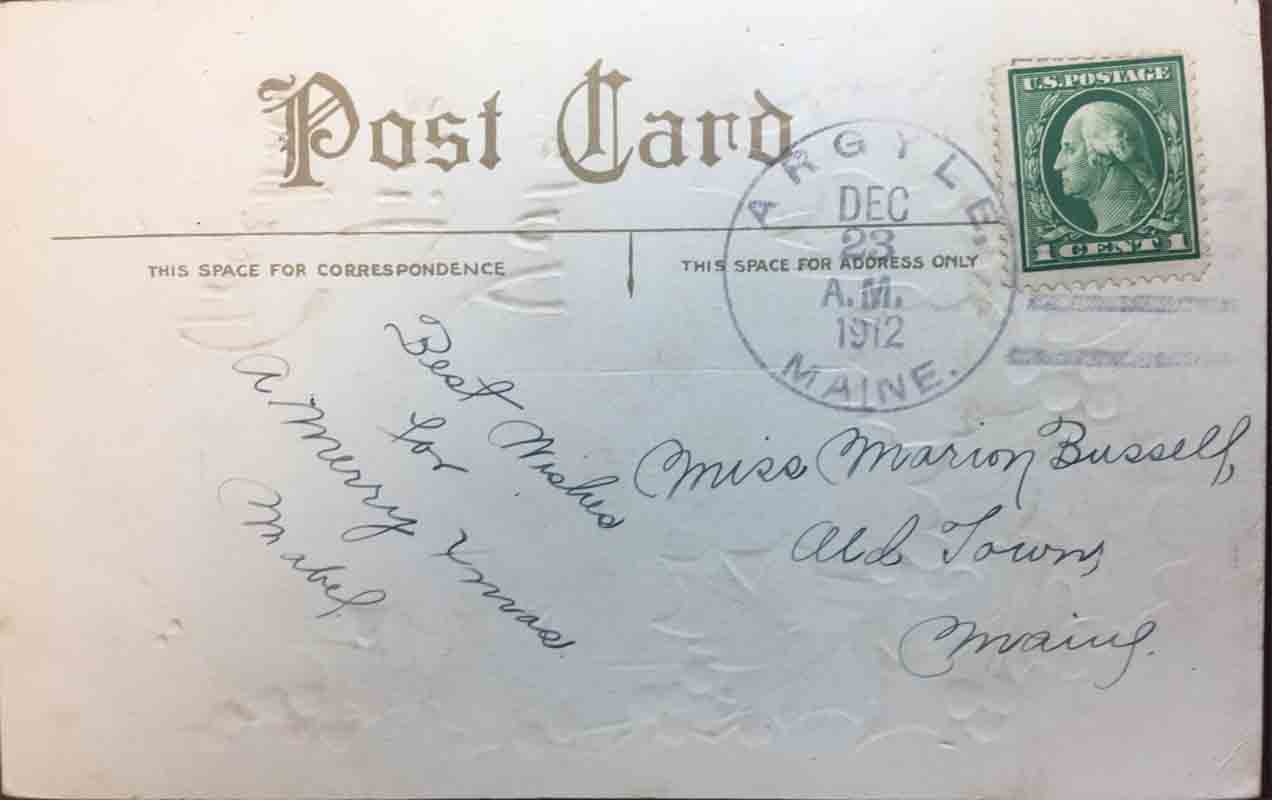 Post Card
U.S. POSTAGE
1 CENT 1
ARGYLE.
DEC
23
A.M.
1912
MAINE.
THIS SPACE FOR CORRESPONDENCE
THIS SPACE FOR ADDRESS ONLY
Best Wishes
for
A Merry Xmas
Mabel.
Miss Marion Bussell,
Old Town,
Maine.